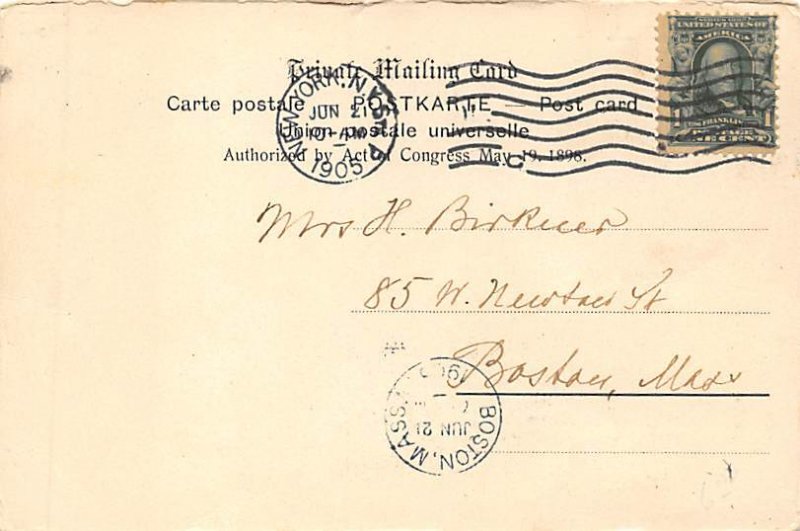 SERIES 1902
UNITED STATES OF
AMERICA
FRANKLIN
1 POSTAGE 1
ONE CENT
Private Mailing Card
Carte postale — POSTKARTE — Post card
Union postale universelle
Authorized by Act of Congress May 19. 1898.
NEW YORK, N.Y. STA.
JUN 21
10-AM
1905
Mrs H. Birkner
85 W. Newton St
Boston, Mass
BOSTON, MASS.
JUN 21
1905